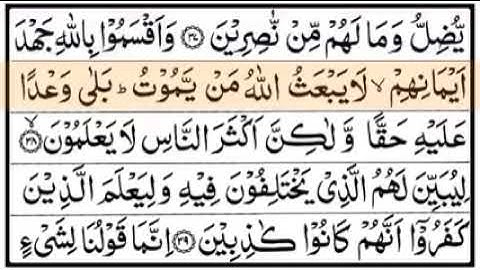 يُّضِلُّ وَمَا لَهُمۡ مِّنۡ نّٰصِرِيۡنَ ﴿۳۷﴾ وَاَقۡسَمُوۡا بِاللّٰهِ جَهۡدَ
اَيۡمَانِهِمۡ ۙ لَا يَبۡعَثُ اللّٰهُ مَنۡ يَّمُوۡتُ ؕ بَلٰى وَعۡدًا
عَلَيۡهِ حَقًّا وَّ لٰـكِنَّ اَكۡثَرَ النَّاسِ لَا يَعۡلَمُوۡنَ ۙ ﴿۳۸﴾
لِيُبَيِّنَ لَهُمُ الَّذِىۡ يَخۡتَلِفُوۡنَ فِيۡهِ وَ لِيَعۡلَمَ الَّذِيۡنَ
كَفَرُوۡۤا اَنَّهُمۡ كَانُوۡا كٰذِبِيۡنَ ﴿۳۹﴾ اِنَّمَا قَوۡلُـنَا لِشَىۡءٍ